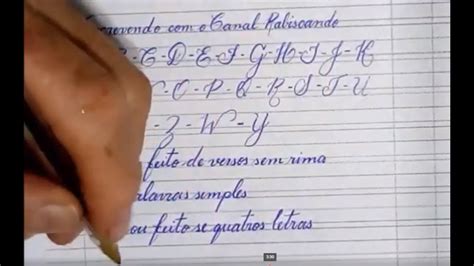 screvendo com o Canal Rabiscando
B-C-D-E-F-G-H-I-J-K
O-P-Q-R-S-T-U
Z-W-Y
feito de versos sem rima
alavras simples
ou feito se quatros letras